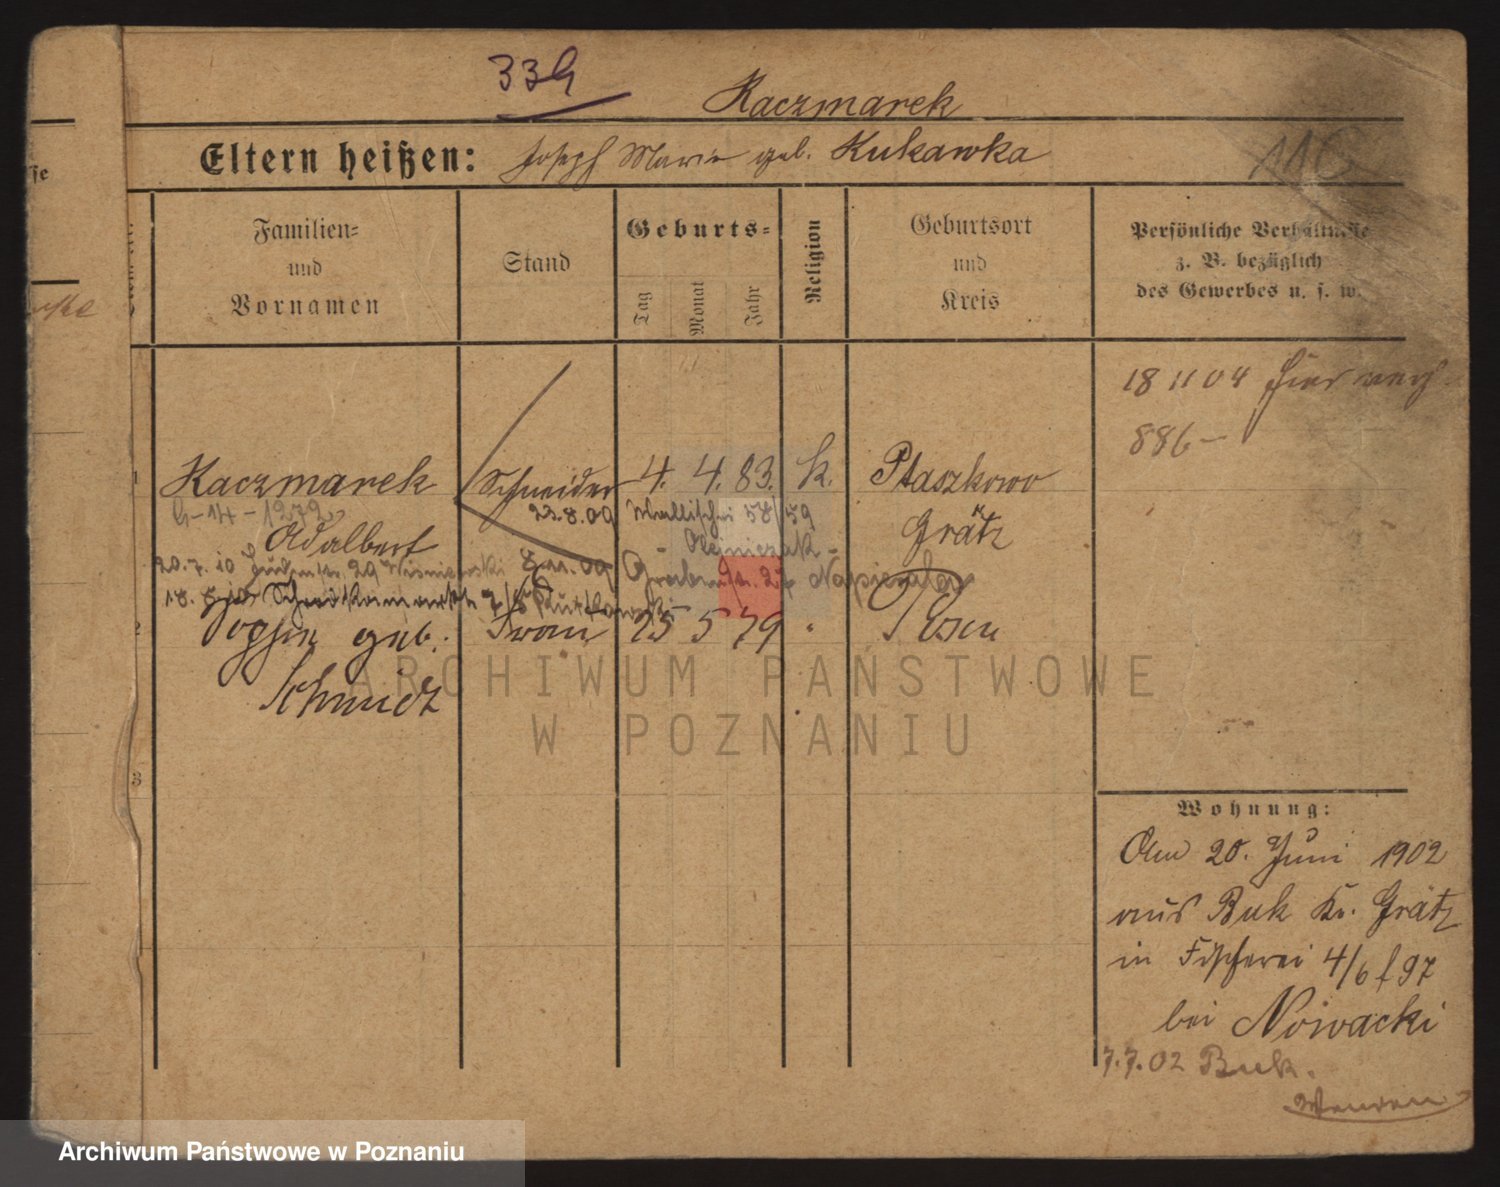 339
Kaczmarek
116
Eltern heißen: Joseph Marie geb. Kukawka
Familien- und Vornamen
Stand
Geburts-
Tag
Monat
Jahr
Religion
Geburtsort und Kreis
Persönliche Verhältnisse z. B. bezüglich des Gewerbes u. s. w.
18 11 04 hier
886-
1 Kaczmarek Schneider 4. 4. 83. k. Ptaszkowo
G-14-1279
23.8.09 Wallischei 58/59
Adalbert Grätz
Olejniczak
20.7.10 29 Wisniewski 8.11.09 Grabenstr. 27 Napierala
18.
2 geb. Frau 25 5 79 " Posen
Schmidt
ARCHIWUM PAŃSTWOWE
W POZNANIU
3
Wohnung:
Am 20. Juni 1902
aus Buk Kr. Grätz
in Fischerei 4/6 f 97
bei Nowacki
7.7.02 Buk.
Archiwum Państwowe w Poznaniu